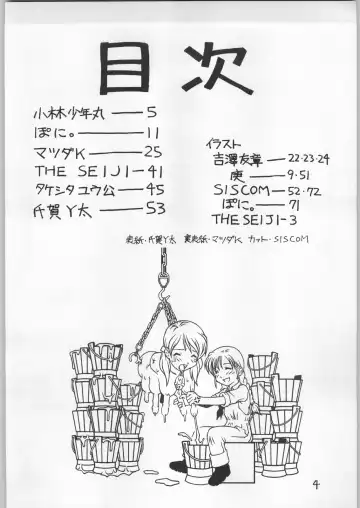 目次
小林少年丸 5
ぽに。 11
マツダK 25
THE SEIJI 41
タケシタユウ公 45
氏賀Y太 53
イラスト
吉澤友章 22・23・24
庚 9・51
SISCOM 52・72
ぽに。 71
THE SEIJI 3
表紙・氏賀Y太 裏表紙・マツダK カット・SISCOM
4